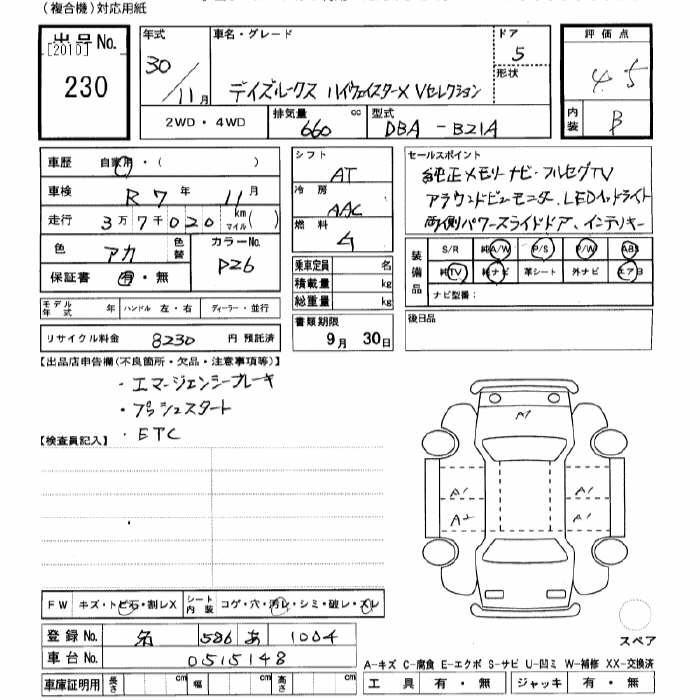 (複合機)対応用紙
出品No.
[2010]
230
年式
30
11月
車名・グレード
デイズルークス ハイウェイスターX Vセレクション
ドア
5
形状
評価点
4.5
内装
B
2WD・4WD
排気量
660 cc
型式
DBA - B21A
車歴 自家用・( )
車検 R 7 年 11 月
走行 3万7千020 km マイル( )
色 アカ
色替
カラーNo.
PZ6
保証書 有・無
シフト
AT
冷房
AAC
燃料
乗車定員 名
積載量 kg
総重量 kg
セールスポイント
純正メモリーナビ・フルセグTV
アラウンドビューモニター、LEDヘッドライト
両側パワースライドドア、インテリキー
装備品
S/R 純A/W P/S P/W ABS
純TV 純ナビ 革シート 外ナビ エアB
ナビ型番:
モデル年式 年 ハンドル 左・右 ディーラー・並行
リサイクル料金 8230 円 預託済
書類期限
9月 30日
後日品
【出品店申告欄(不良箇所・欠品・注意事項等)】
・エマージェンシーブレーキ
・プッシュスタート
・ETC
【検査員記入】
A1
A1 A1
A2 A1
FW キズ・トビ石・割レX シート内装 コゲ・穴・汚レ・シミ・破レ・スレ
登録No. 名 586 あ 1004
車台No. 0515148
車庫証明用 長さ cm 幅 cm 高さ cm
スペア
A-キズ C-腐食 E-エクボ S-サビ U-凹ミ W-補修 XX-交換済
工具 有・無 ジャッキ 有・無